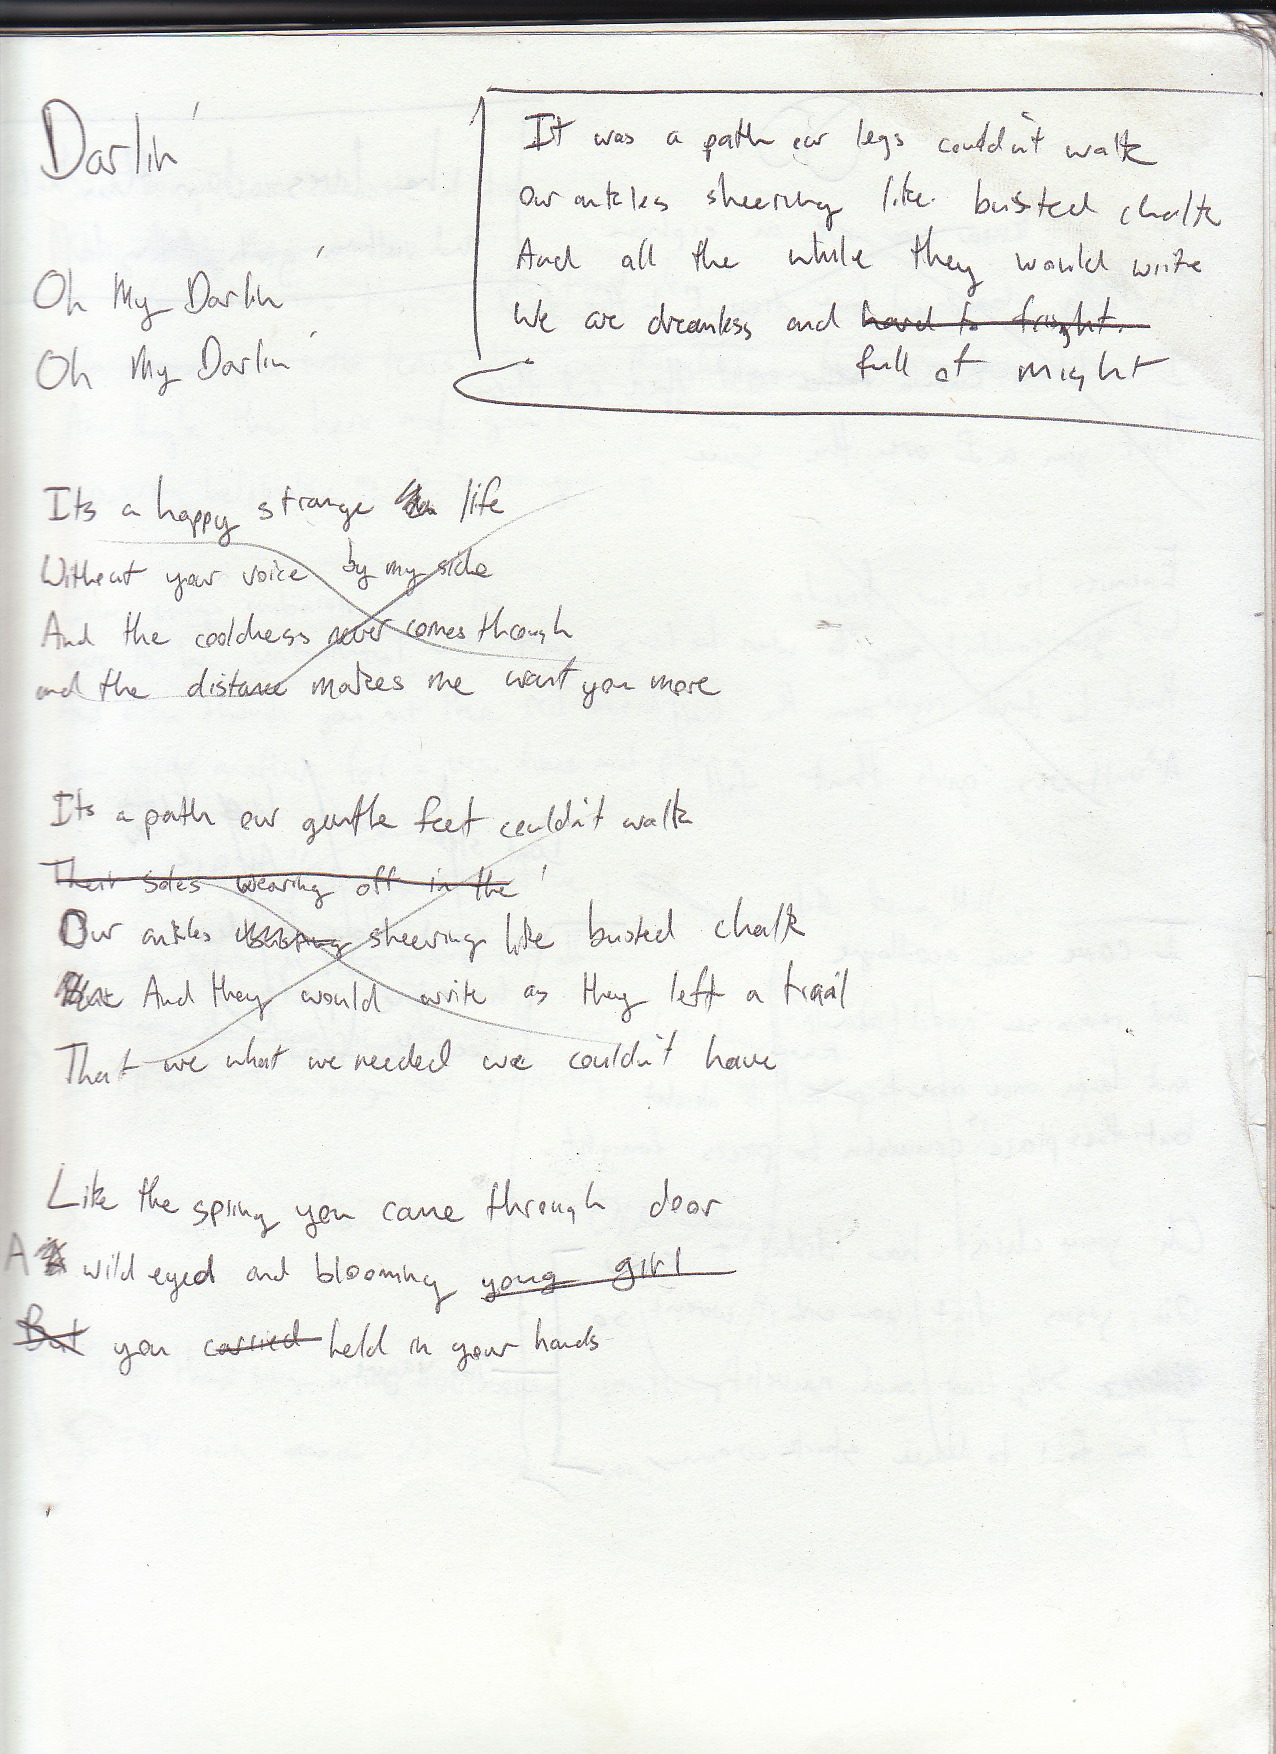 Darlin'
Oh My Darlin'
Oh My Darlin'
It was a path our legs couldn't walk
Our ankles sheering like busted chalk
And all the while they would write
We are dreamless and hard to fright.
full of might
Its a happy strange life
Without your voice by my side
And the cooldness never comes through
and the distance makes me want you more
Its a path our gentle feet couldn't walk
Their soles wearing off in the
Our ankles sheering like busted chalk
And they would write as they left a trail
That we what we needed we couldn't have
Like the spring you came through door
A wild eyed and blooming young girl
But you carried held in your hands